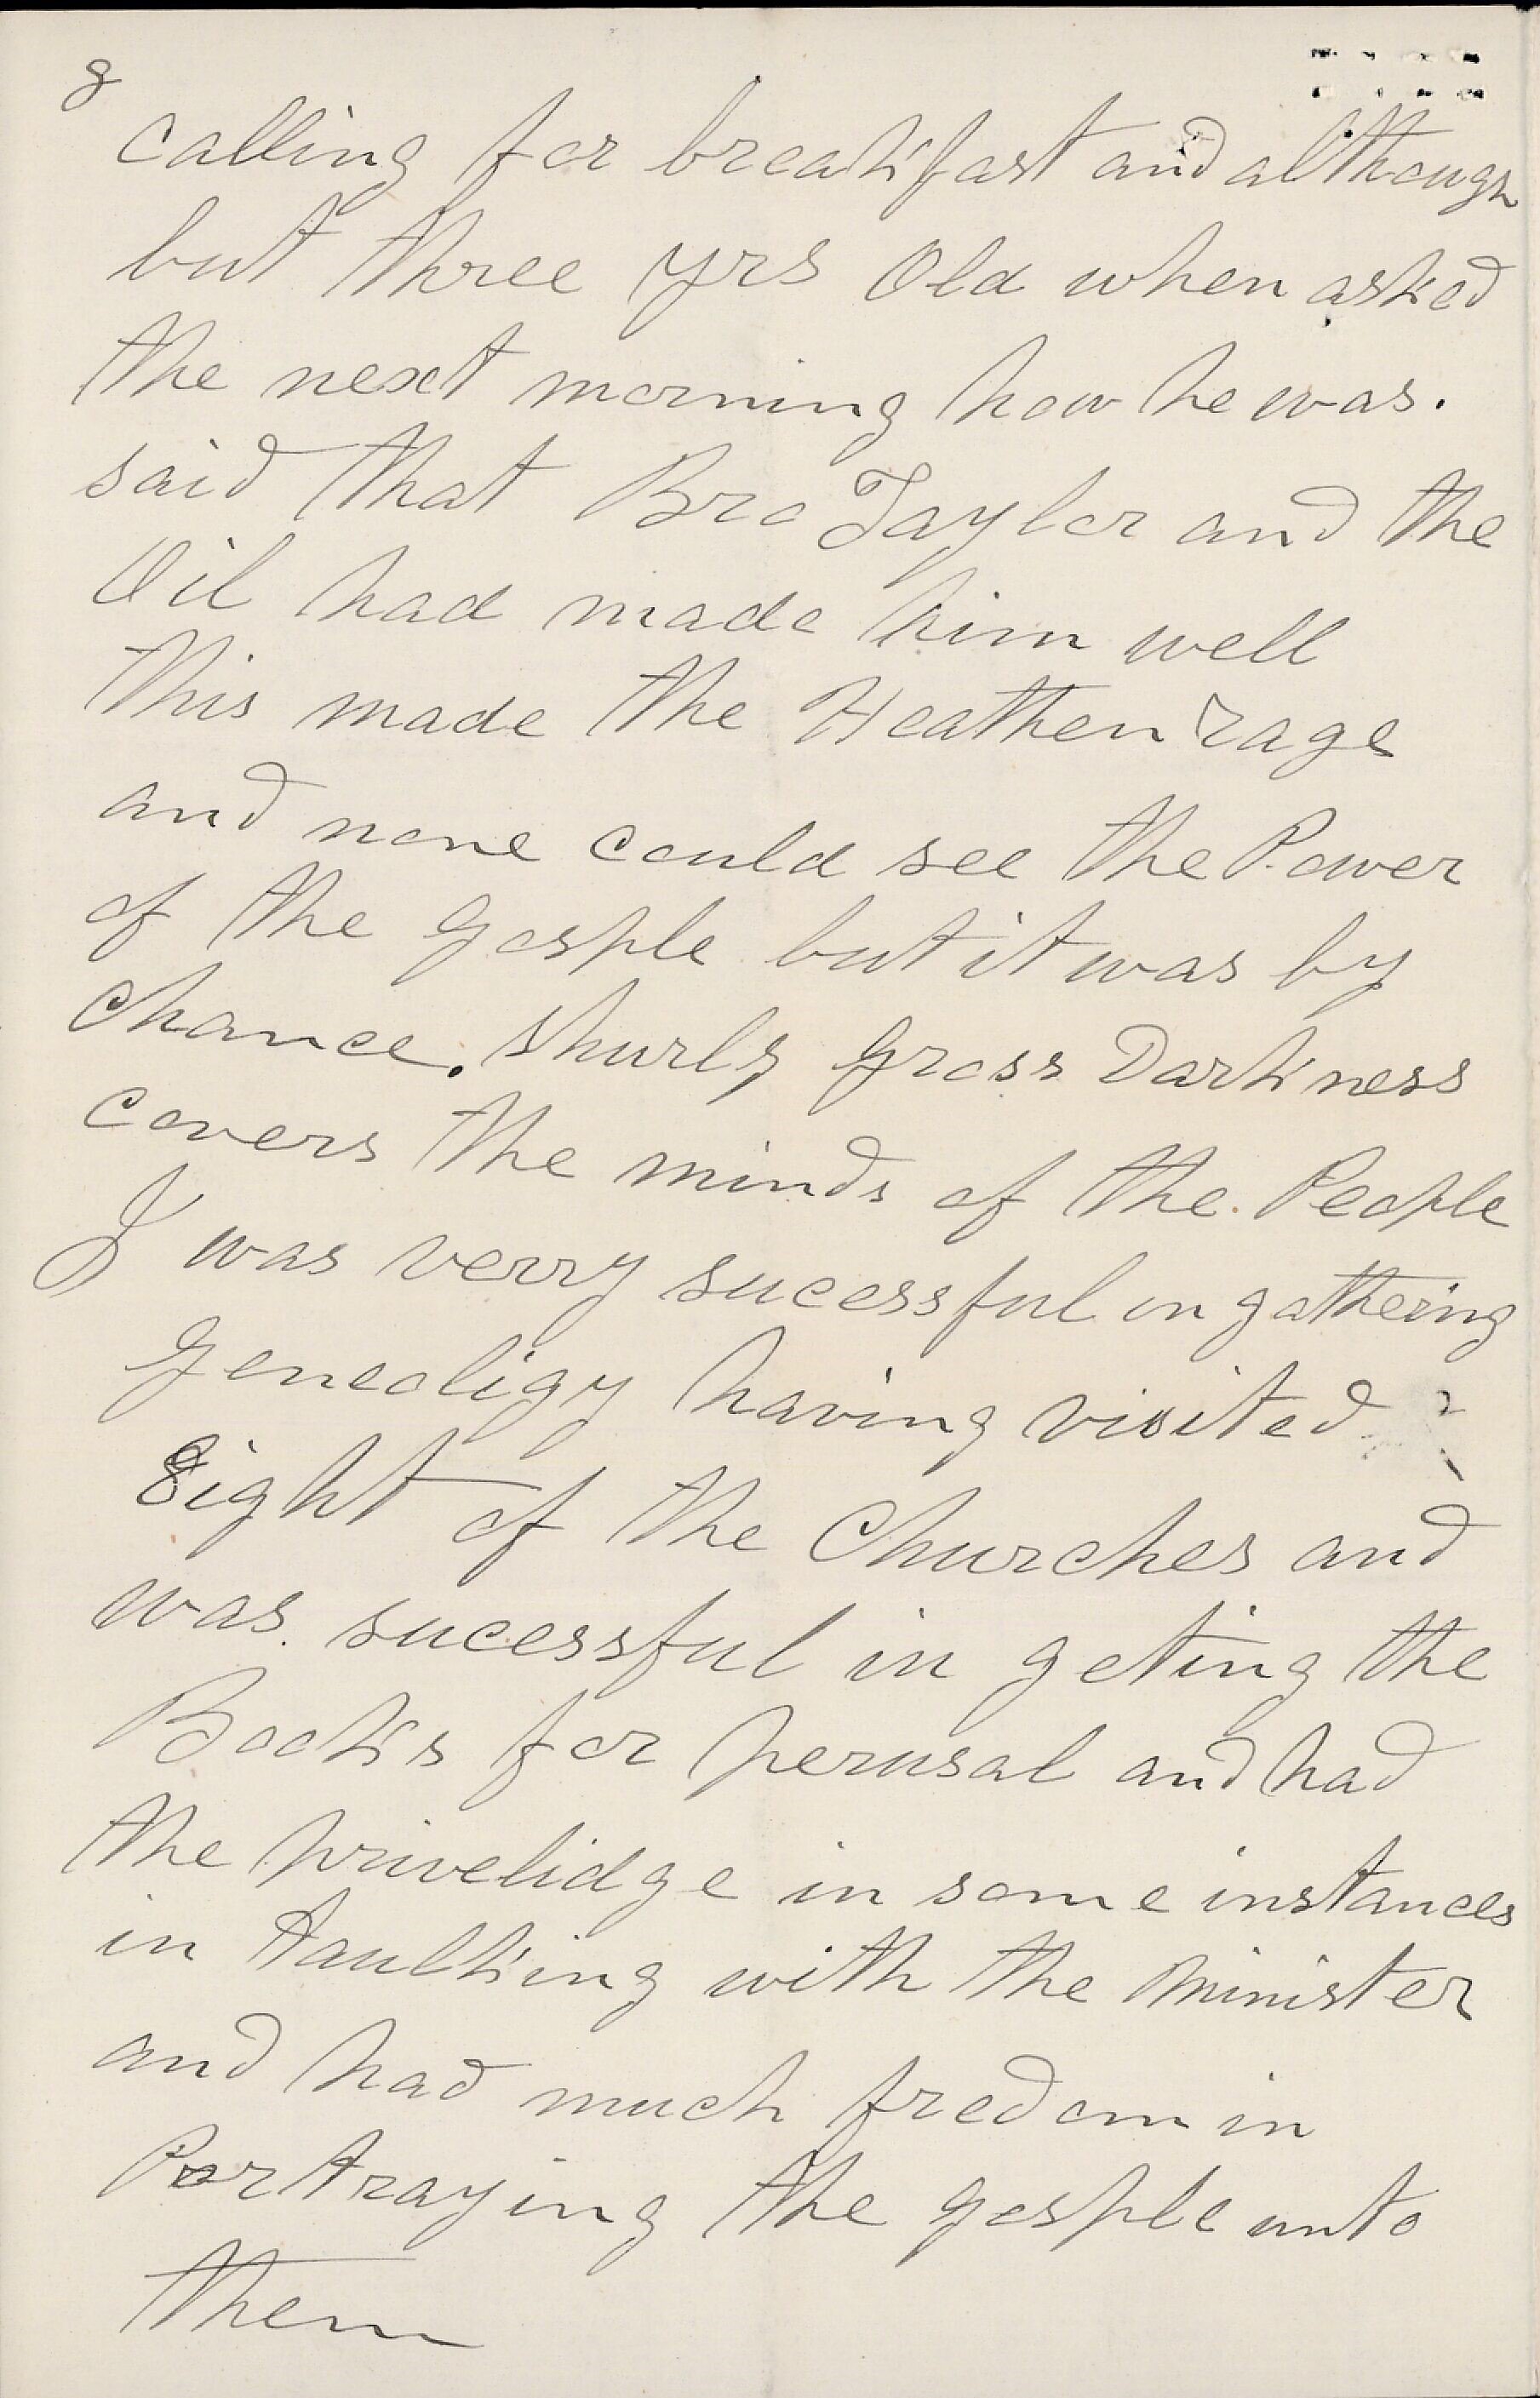 8
calling for breakfast and although
but three yrs Old when asked
the next morning how he was.
said that Bro Taylor and the
Oil had made him well
this made the Heathen rage
and none could see the Power
of the gosple but it was by
Chance. Shurly gross Darkness
covers the minds of the People
I was verry sucessful in gathering
genealigy having visited
Eight of the Churches and
was sucessful in geting the
Books for perusal and had
the privelidge in some instances
in taulking with the minister
and had much fredom in
Portraying the gosple unto
them